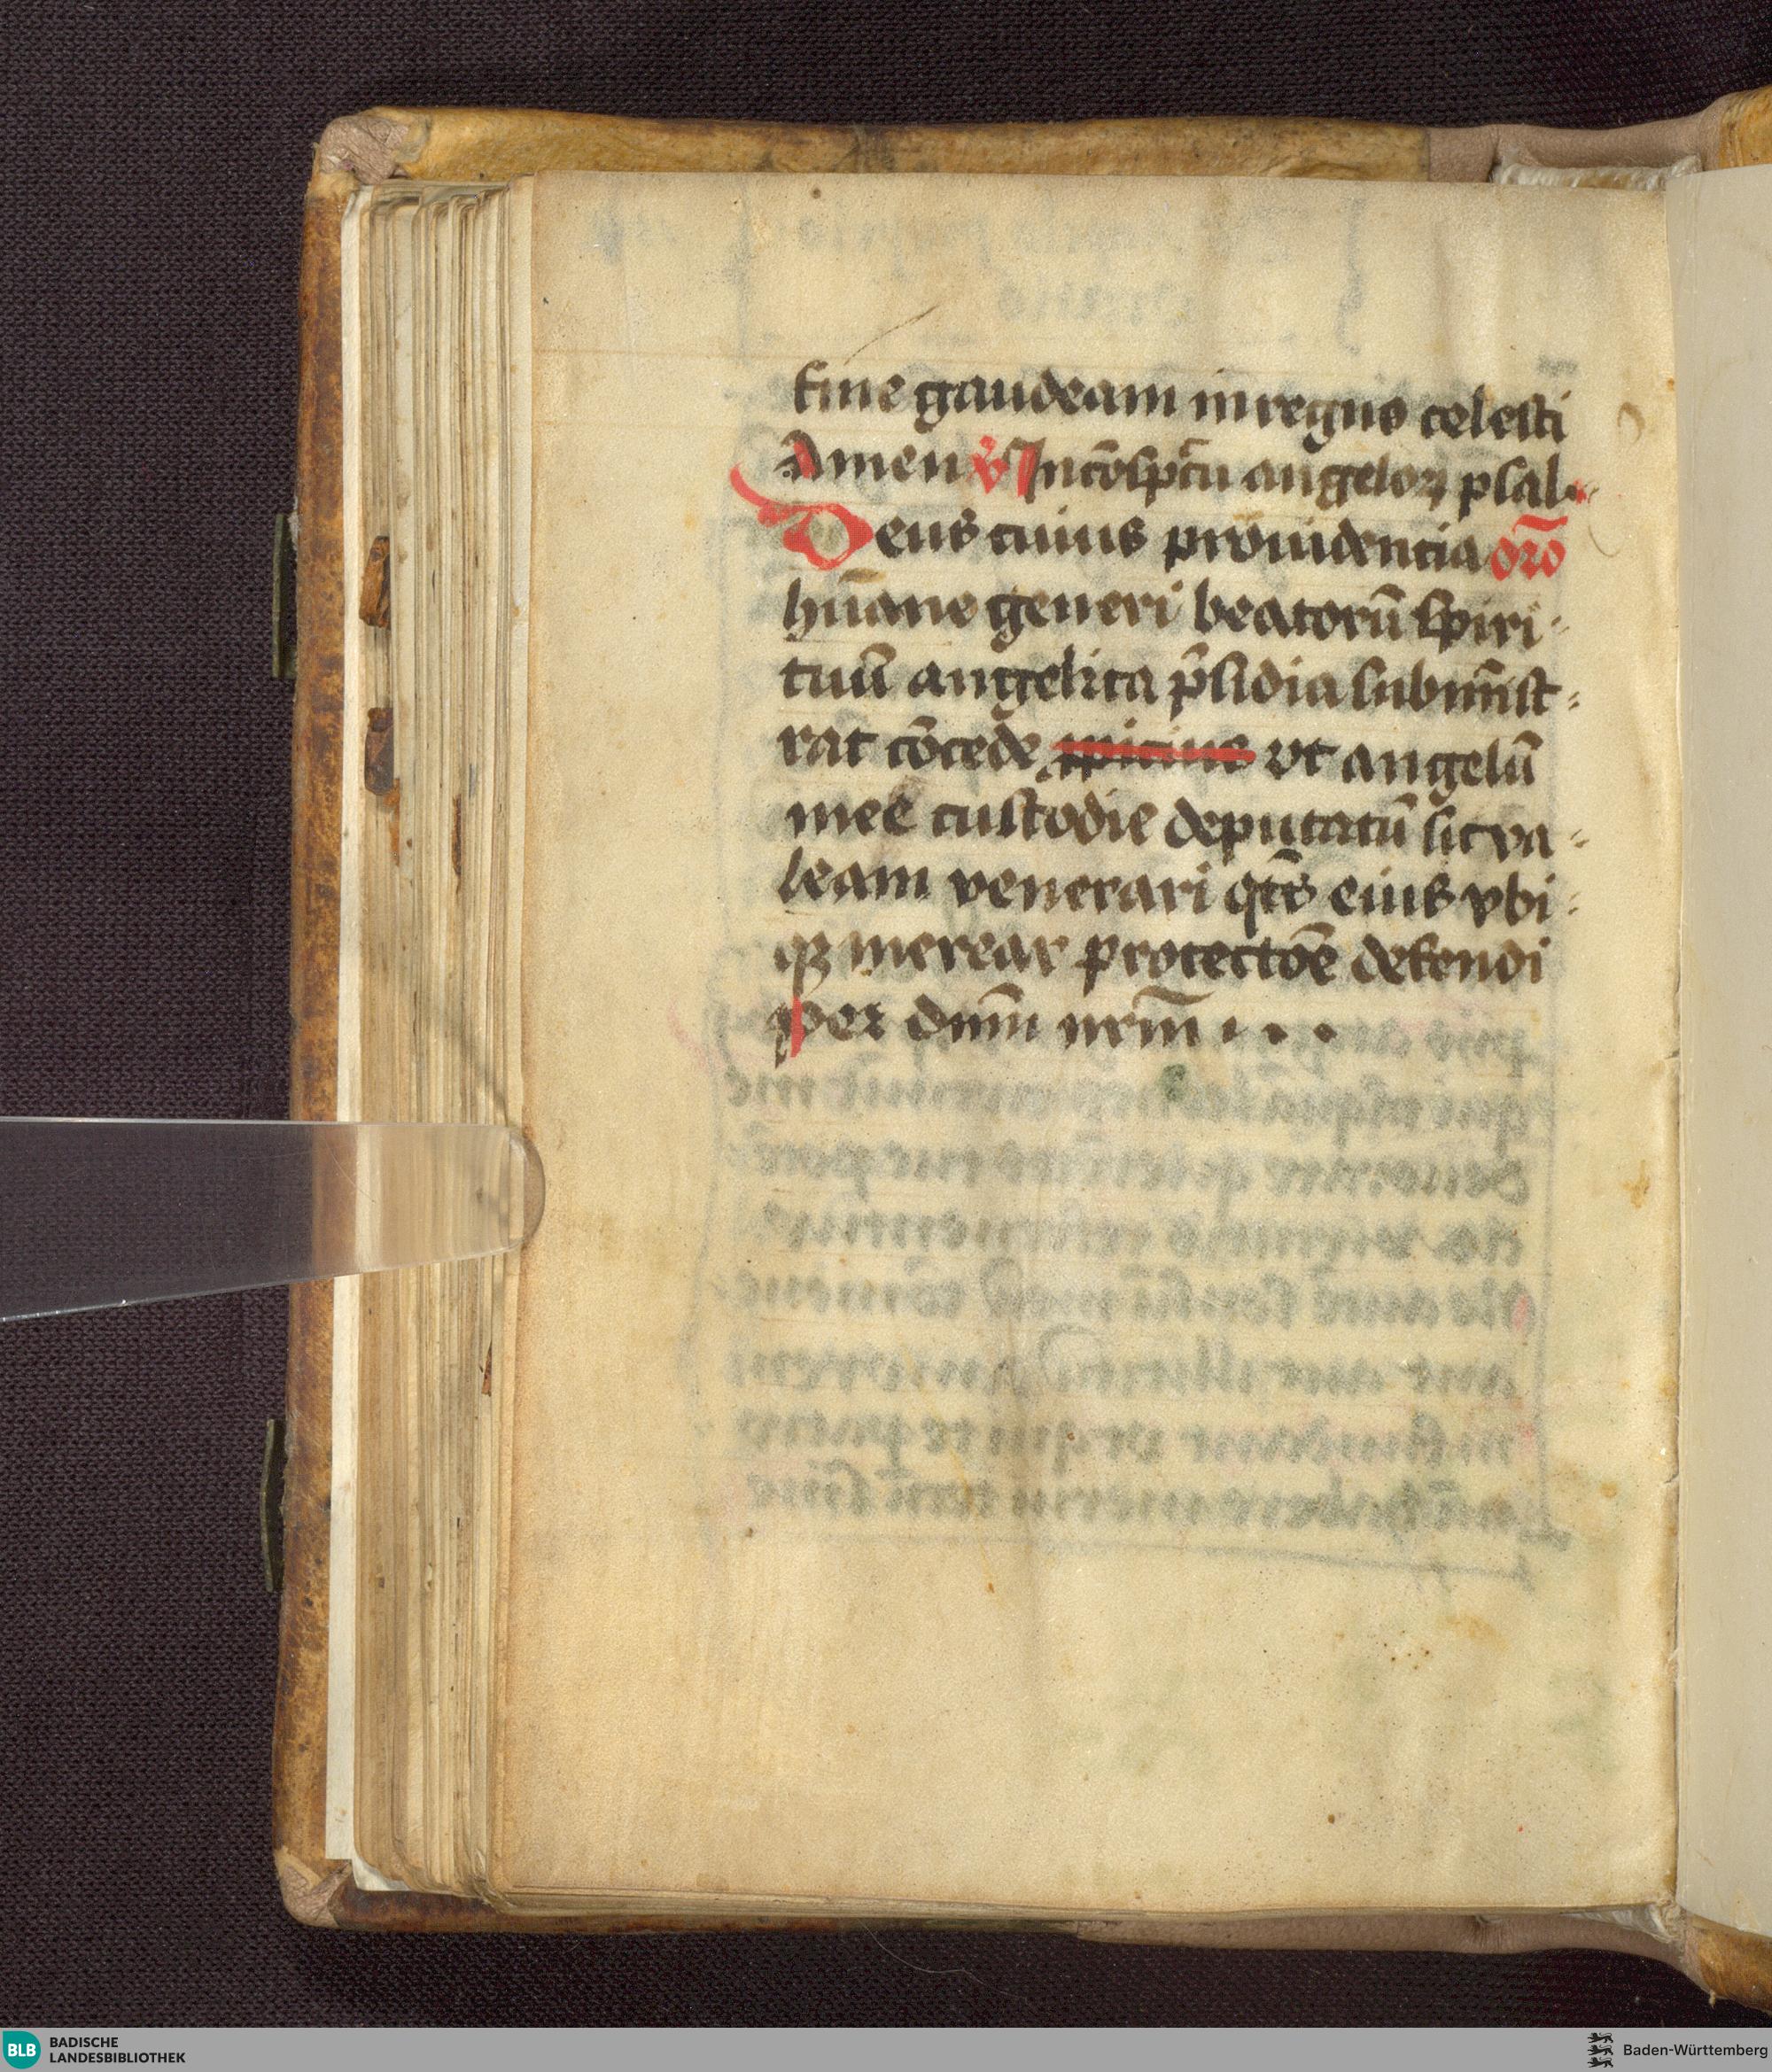 fine gaudeam in regno celesti
Amen v̊ In cōspc̄tu angeloꝝ psal
Deus cuius prouidencia oro̅
hūane generi beatorū spiri-
tuū angelica p̄sidia submīst-
rat cōcede ppicius vt angelū
mee custodie deputatū sic va-
leam venerari qt̄s eius vbi-
qꝫ merear protectōe defendi
Per dnm̄ nrm̄ . . .
BLB BADISCHE
LANDESBIBLIOTHEK
Baden-Württemberg